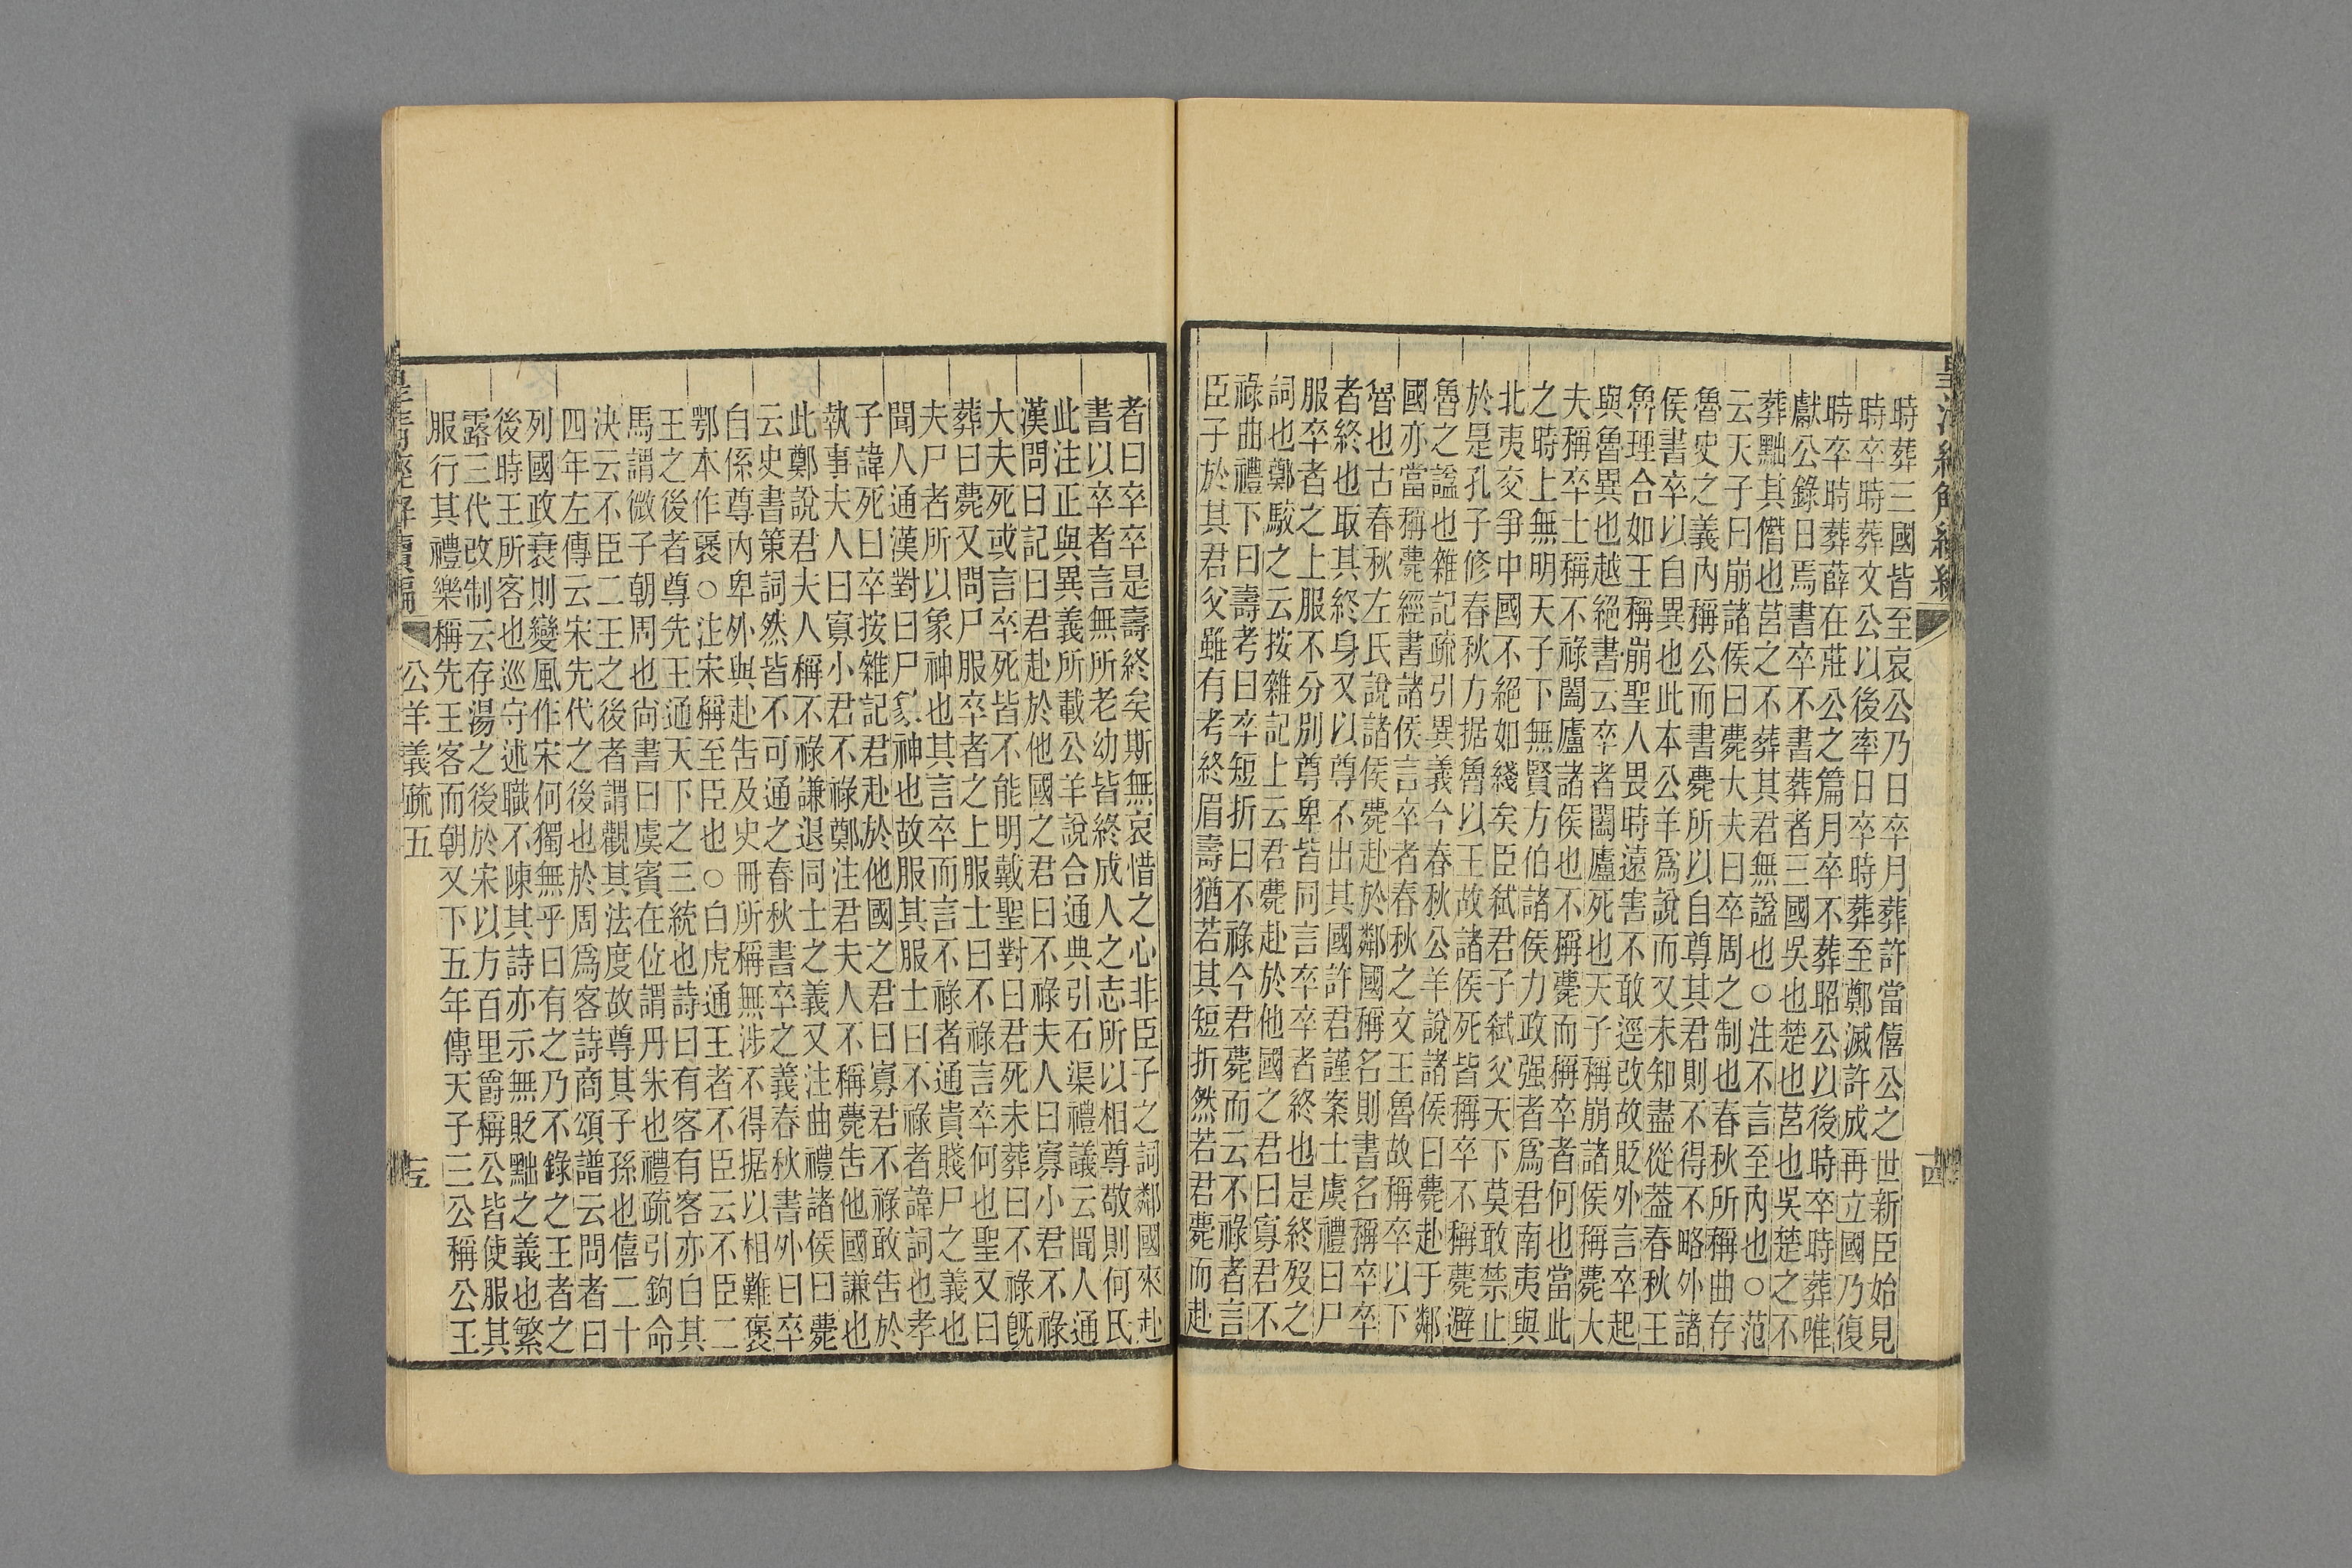 時葬三國皆至哀公乃日卒月葬許當僖公之世新臣始見
時卒時葬文公以後率日卒時葬至鄭滅許成再立國乃復
時卒時葬薛在莊公之篇月卒不葬昭公以後時卒時葬唯
獻公錄日焉書卒不書葬者三國吳也楚也莒也吳楚之不
葬黜其僭也莒之不葬其君無諡也○注不言至內也○范
云天子曰崩諸侯曰薨大夫曰卒周之制也春秋所稱曲存
魯史之義內稱公而書薨所以自尊其君則不得不略外諸
侯書卒以自異也此本公羊爲說而又未知盡從葢春秋王
魯理合如王稱崩聖人畏時遠害不敢逕改故貶外言卒起
與魯異也越絕書云卒者闔廬死也天子稱崩諸侯稱薨大
夫稱卒士稱不祿闔廬諸侯也不稱薨而稱卒者何也當此
之時上無明天子下無賢方伯諸侯力政强者爲君南夷與
北夷交爭中國不絕如綫矣臣弑君子弑父天下莫敢禁止
於是孔子修春秋方据魯以王故諸侯死皆稱卒不稱薨避
魯之諡也雜記疏引異義今春秋公羊說諸侯曰薨赴于鄰
國亦當稱薨經書諸侯言卒者春秋之文王魯故稱卒以下
魯也古春秋左氏說諸侯薨赴於鄰國稱名則書名稱卒卒
者終也取其終身又以尊不出其國許君謹案士虞禮曰尸
服卒者之上服不分別尊卑皆同言卒卒者終也是終歿之
詞也鄭駮之云按雜記上云君薨赴於他國之君曰寡君不
祿曲禮下曰壽考曰卒短折曰不祿今君薨而云不祿者言
臣子於其君父雖有考終眉壽猶若其短折然若君薨而赴
者曰卒卒是壽終矣斯無哀惜之心非臣子之詞鄰國來赴
書以卒者言無所老幼皆終成人之志所以相尊敬則何氏
此注正與異義所載公羊說合通典引石渠禮議云聞人通
漢問曰記曰君赴於他國之君曰不祿夫人曰寡小君不祿
大夫死或言卒死皆不能明戴聖對曰君死未葬曰不祿旣
葬曰薨又問尸服卒者之上服士曰不祿言卒何也聖又曰
夫尸者所以象神也其言卒而言不祿者通貴賤尸之義也
聞人通漢對曰尸象神也故服其服士曰不祿者諱詞也孝
子諱死曰卒按雜記君赴於他國之君曰寡君不祿敢告於
執事夫人曰寡小君不祿鄭注君夫人不稱薨告他國謙也
此鄭說君夫人稱不祿謙退同士之義又注曲禮諸侯曰薨
云史書策詞然皆不可通之春秋書卒之義春秋書外曰卒
白係尊內卑外與赴告及史冊所稱無涉不得据以相難褒
鄂本作襃○注宋稱至臣也○白虎通王者不臣云不臣二
王之後者尊先王通天下之三統也詩曰有客有客亦白其
馬謂微子朝周也尙書曰虞賓在位謂丹朱也禮疏引鉤命
決云不臣二王之後者謂觀其法度故尊其子孫也僖二十
四年左傳云宋先代之後也於周爲客詩商頌譜云問者曰
列國政衰則變風作宋何獨無乎曰有之乃不錄之王者之
後時王所客也巡守述職不陳其詩亦示無貶黜之義也繁
露三代改制云存湯之後於宋以方百里爵稱公皆使服其
服行其禮樂稱先王客而朝又下五年傳天子三公稱公王
公羊義疏五